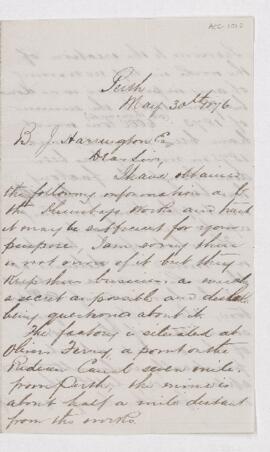 Perth
May 30th 1876
B. J. Harrington Esq
Dear Sir,
I have obtained
the following information as to
the Plumbago Works and trust
it may be sufficient for your
purpose, I am sorry there
is not more of it but they
keep their business as much
a secret as possible and dislike
being questioned about it.
The factory is situated at
Olivers Ferry, a point on the
Rideau Canal seven miles
from Perth, the mine is
about half a mile distant
from the works.